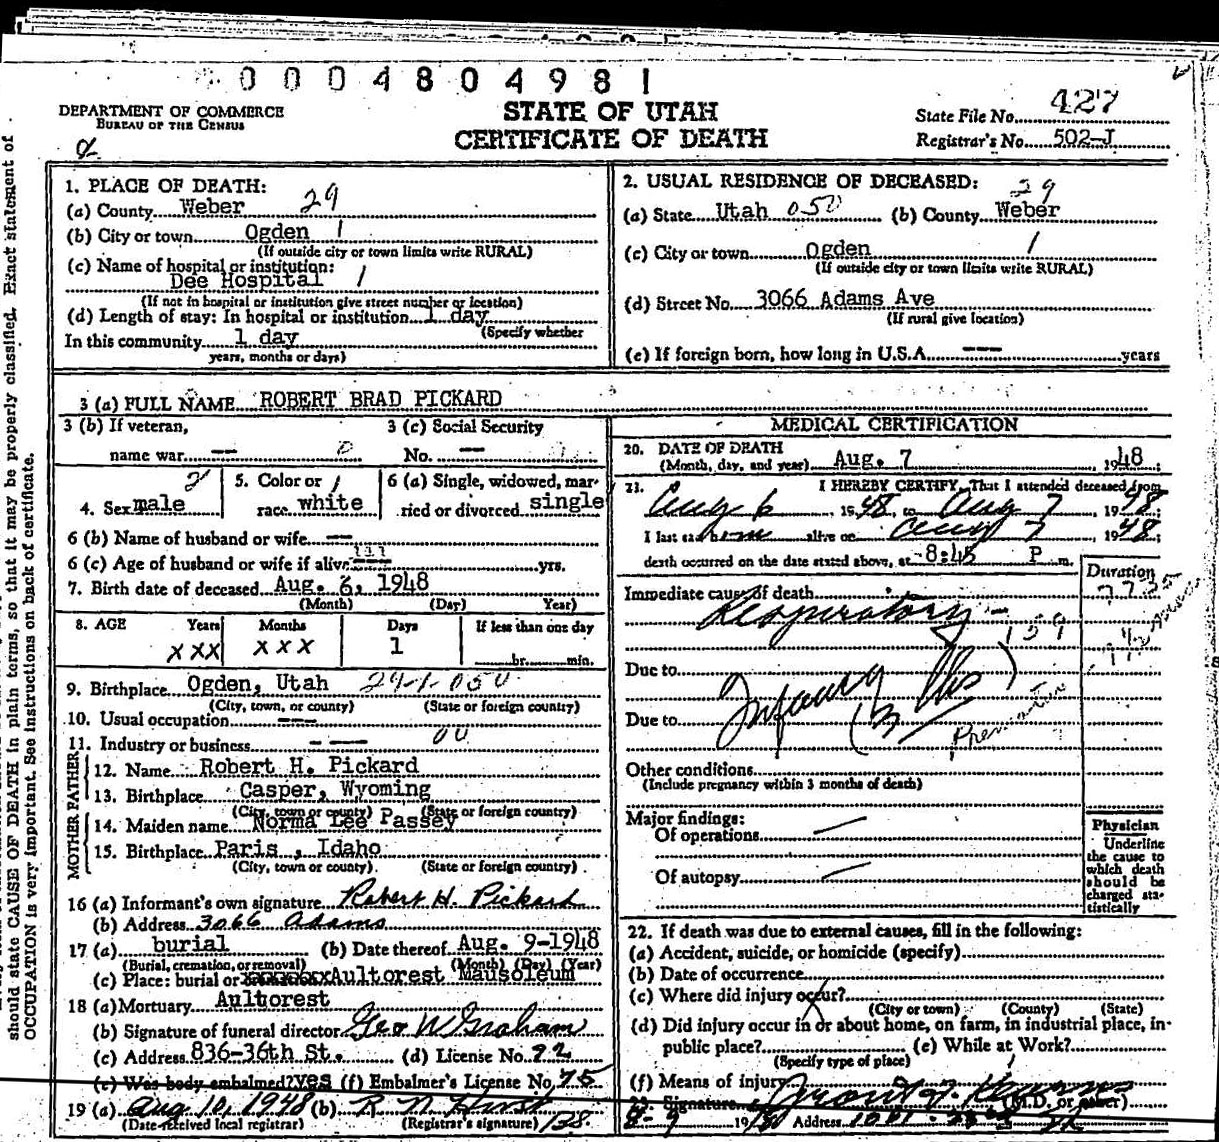 0004804981
DEPARTMENT OF COMMERCE
BUREAU OF THE CENSUS
STATE OF UTAH
CERTIFICATE OF DEATH
State File No. 427
Registrar's No. 502-J
should state CAUSE OF DEATH in plain terms, so that it may be properly classified. Exact statement of
OCCUPATION is very important. See instructions on back of certificate.
1. PLACE OF DEATH:
(a) County Weber 29
(b) City or town Ogden 1
(If outside city or town limits write RURAL)
(c) Name of hospital or institution:
Dee Hospital 1
(If not in hospital or institution give street number or location)
(d) Length of stay: In hospital or institution 1 day
(Specify whether
In this community 1 day
years, months or days)
2. USUAL RESIDENCE OF DECEASED:
29
(a) State Utah 050 (b) County Weber
(c) City or town Ogden 1
(If outside city or town limits write RURAL)
(d) Street No. 3066 Adams Ave
(If rural give location)
(e) If foreign born, how long in U.S.A. --- years
3 (a) FULL NAME ROBERT BRAD PICKARD
3 (b) If veteran,
name war --
3 (c) Social Security
No. --
4. Sex male 2
5. Color or 1
race white
6 (a) Single, widowed, mar-
ried or divorced single
6 (b) Name of husband or wife ---
6 (c) Age of husband or wife if alive --- yrs.
7. Birth date of deceased Aug. 6, 1948
(Month) (Day) Year)
8. AGE Years Months Days If less than one day
xxx xxx 1 hr. min.
9. Birthplace Ogden, Utah 29-1-050
(City, town, or county) (State or foreign country)
10. Usual occupation ---
11. Industry or business ---
FATHER
12. Name Robert H. Pickard
13. Birthplace Casper, Wyoming
(City, town or county) (State or foreign country)
MOTHER
14. Maiden name Norma Lee Passey
15. Birthplace Paris, Idaho
(City, town or county) (State or foreign country)
16 (a) Informant's own signature Robert H. Pickard
(b) Address 3066 Adams
17 (a) burial (b) Date thereof Aug. 9-1948
(Burial, cremation, or removal) (Month) (Day) (Year)
(c) Place: burial or xxxxxxxx Aultorest Mausoleum
18 (a) Mortuary Aultorest
(b) Signature of funeral director Geo W Graham
(c) Address 836-36th St. (d) License No. 92
(e) Was body embalmed? yes (f) Embalmer's License No. 75
19 (a) Aug 10, 1948 (b) R N Hirst
(Date received local registrar) (Registrar's signature) /38.
MEDICAL CERTIFICATION
20. DATE OF DEATH
(Month, day, and year) Aug. 7, 1948;
21. I HEREBY CERTIFY, That I attended deceased from
Aug 6, 1948, to Aug 7, 1948;
I last saw him alive on Aug 7, 1948;
death occurred on the date stated above, at 8:45 P m.
Duration
Immediate cause of death
Respiratory
159
Due to
Infancy
Due to
Premature
Other conditions
(Include pregnancy within 3 months of death)
Major findings:
Of operations
Of autopsy
Physician
Underline
the cause to
which death
should be
charged sta-
tistically
22. If death was due to external causes, fill in the following:
(a) Accident, suicide, or homicide (specify)
(b) Date of occurrence
(c) Where did injury occur?
(City or town) (County) (State)
(d) Did injury occur in or about home, on farm, in industrial place, in-
public place? (e) While at Work?
(Specify type of place)
(f) Means of injury
23. Signature (M.D. or other)
8-9 Address